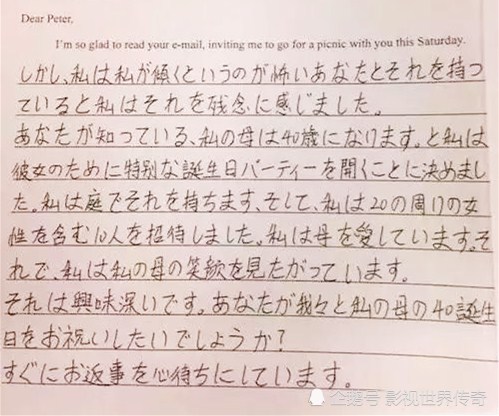 Dear Peter,
I'm so glad to read your e-mail, inviting me to go for a picnic with you this Saturday.
しかし、私は私が傾くというのが怖いあなたとそれを持つ
ていると私はそれを残念に感じました。
あなたが知っている、私の母は40歳になります。と私は
彼女のために特別な誕生日パーティーを開くことに決めまし
た。私は庭でそれを持ちます、そして、私は20の周りの女
性を含む10人を招待しました。私は母を愛しています。そ
れで、私は私の母の笑顔を見たがっています。
それは興味深いです。あなたが我々と私の母の40誕生
日をお祝いしたいでしょうか?
すぐにお返事を心待ちにしています。
企鹅号 影视世界传奇